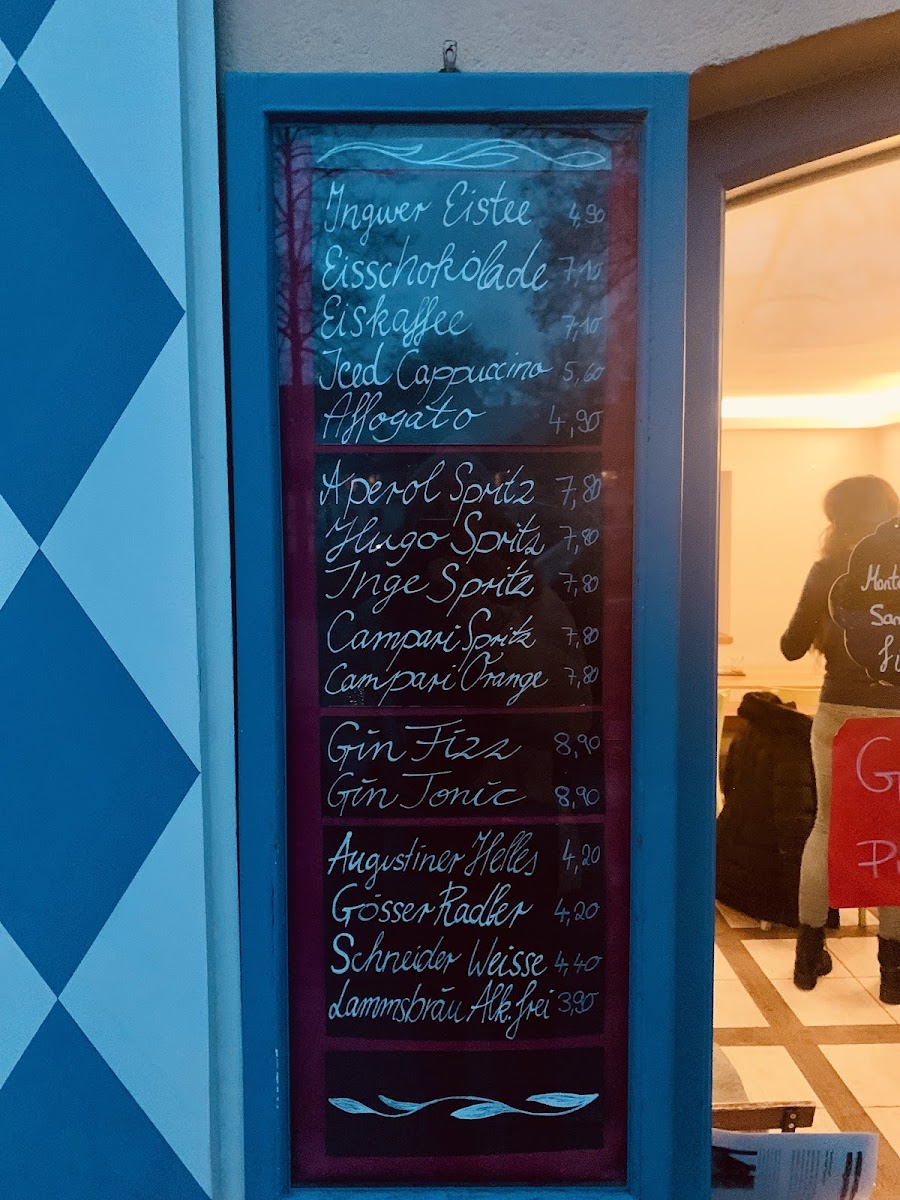 Ingwer Eistee 4,90
Eisschokolade 7,10
Eiskaffee 7,10
Iced Cappuccino 5,60
Affogato 4,90
Aperol Spritz 7,80
Hugo Spritz 7,80
Inge Spritz 7,80
Campari Spritz 7,80
Campari Orange 7,80
Gin Fizz 8,90
Gin Tonic 8,90
Augustiner Helles 4,20
Gösser Radler 4,20
Schneider Weisse 4,40
Lammsbräu Alk.frei 3,90